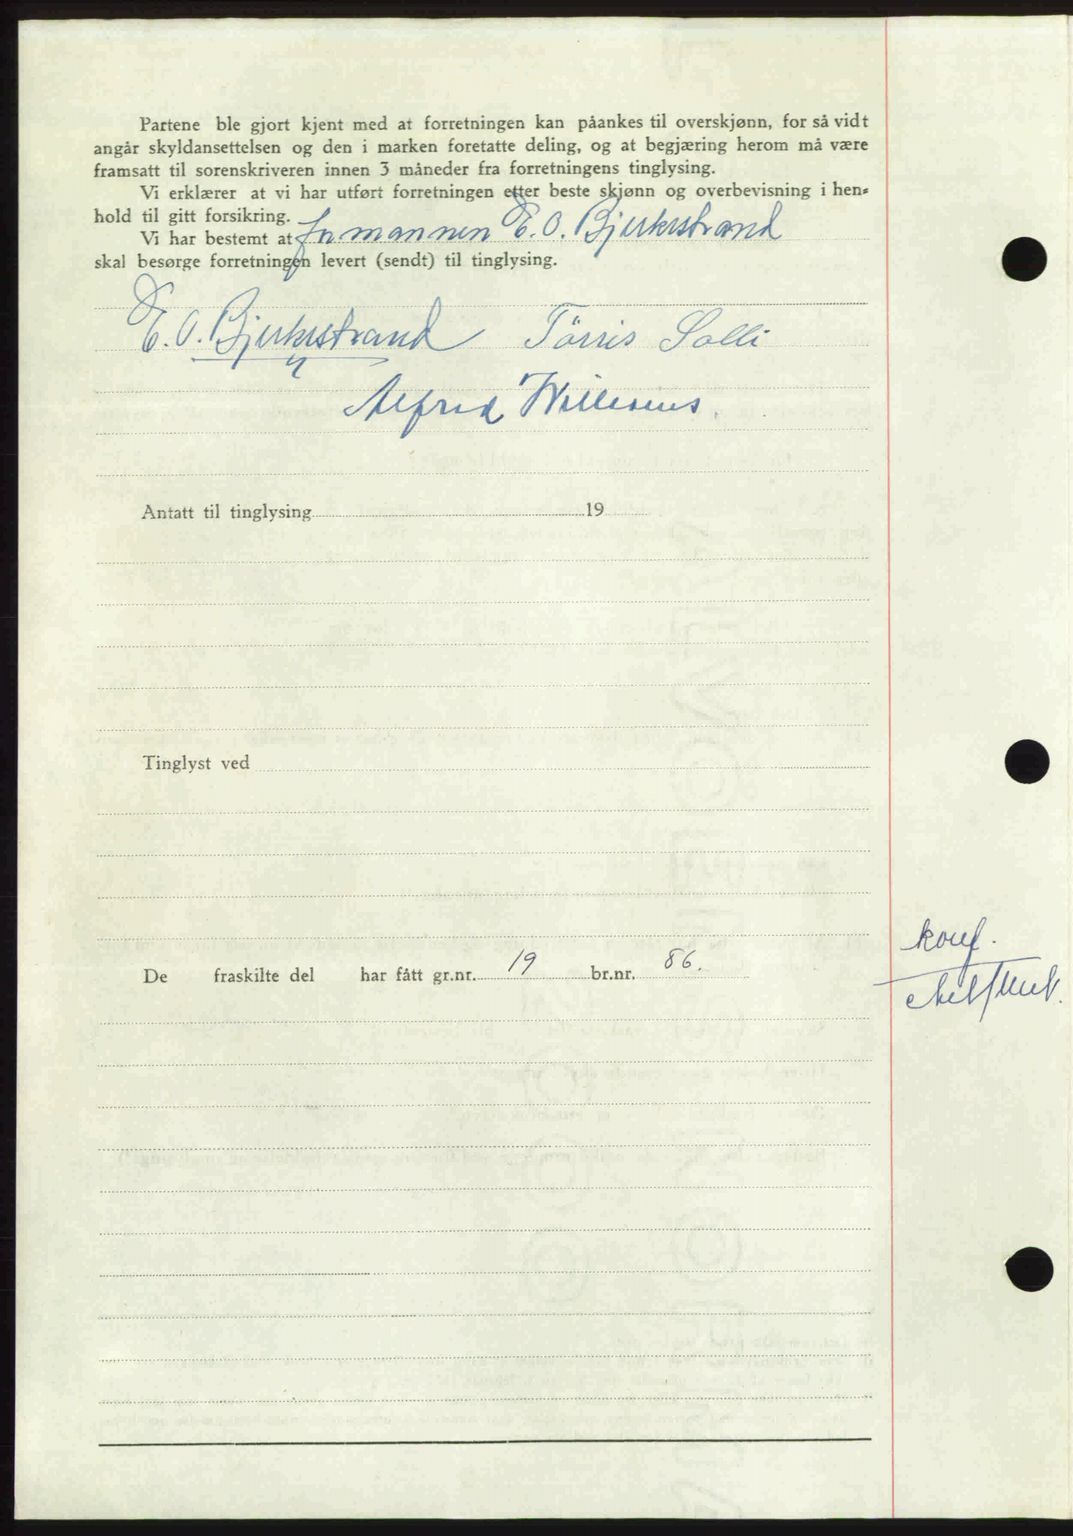 Partene ble gjort kjent med at forretningen kan påankes til overskjønn, for så vidt
angår skyldansettelsen og den i marken foretatte deling, og at begjæring herom må være
framsatt til sorenskriveren innen 3 måneder fra forretningens tinglysing.
Vi erklærer at vi har utført forretningen etter beste skjønn og overbevisning i hen-
hold til gitt forsikring.
Vi har bestemt at formannen E. O. Bjerkestrand
skal besørge forretningen levert (sendt) til tinglysing.
E. O. Bjerkestrand Tørris Solli
Alfred
Antatt til tinglysing 19
Tinglyst ved
De fraskilte del har fått gr.nr. 19 br.nr. 86.
konf.